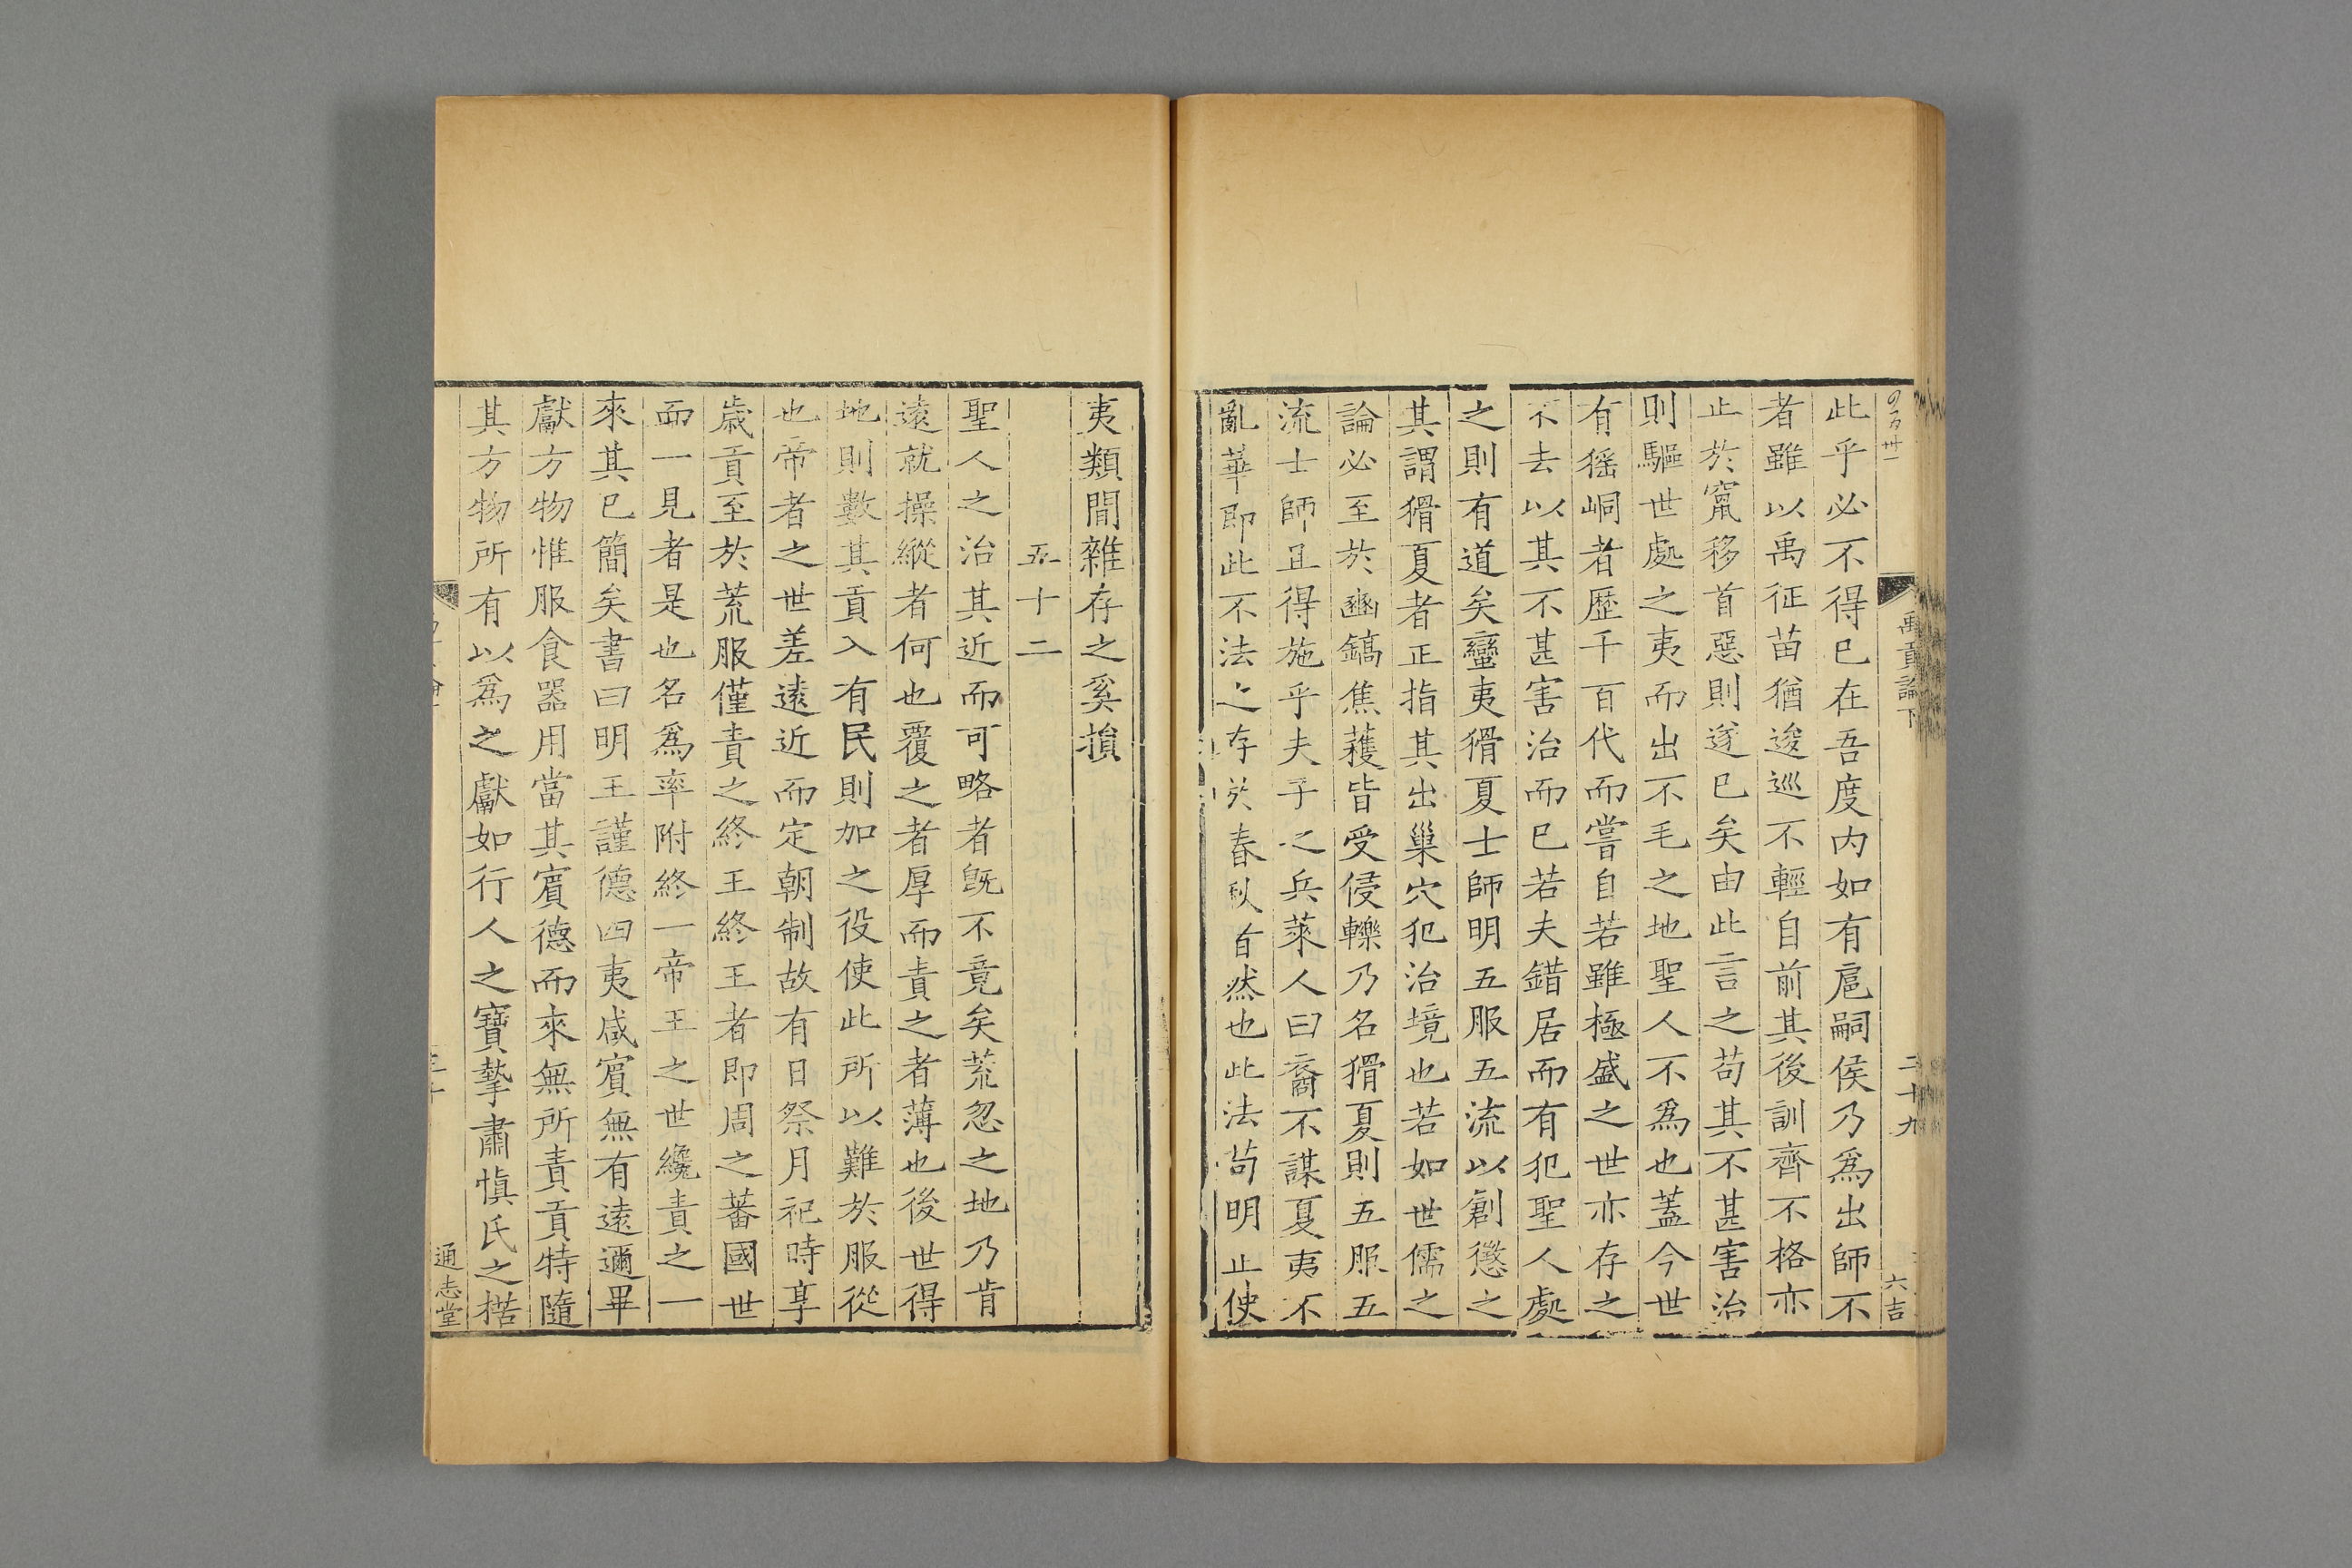 禹貢論下
二十九
六吉
此乎必不得已在吾度内如有扈嗣侯乃爲出師不
者雖以禹征苗猶逡巡不輕自前其後訓齊不格亦
止於竄移首惡則遂已矣由此言之苟其不甚害治
則驅世處之夷而出不毛之地聖人不爲也蓋今世
有猺峒者歷千百代而嘗自若雖極盛之世亦存之
不去以其不甚害治而已若夫錯居而有犯聖人處
之則有道矣蠻夷猾夏士師明五服五流以創懲之
其謂猾夏者正指其出巢穴犯治境也若如世儒之
論必至於豳鎬焦穫皆受侵轢乃名猾夏則五服五
流士師且得施乎夫子之兵萊人曰裔不謀夏夷不
亂華即此不法之存於春秋自然也此法苟明止使
夷類閒雜存之奚損
五十二
聖人之治其近而可略者既不竟矣荒忽之地乃肯
遠就操縱者何也覆之者厚而責之者薄也後世得
地則數其貢入有民則加之役使此所以難於服從
也帝者之世差遠近而定朝制故有日祭月祀時享
歲貢至於荒服僅責之終王終王者即周之蕃國世
而一見者是也名爲率附終一帝王之世纔責之一
來其已簡矣書曰明王謹德四夷咸賓無有遠邇畢
獻方物惟服食器用當其賓德而來無所責貢特隨
其方物所有以爲之獻如行人之寶摯肅愼氏之楛
通志堂